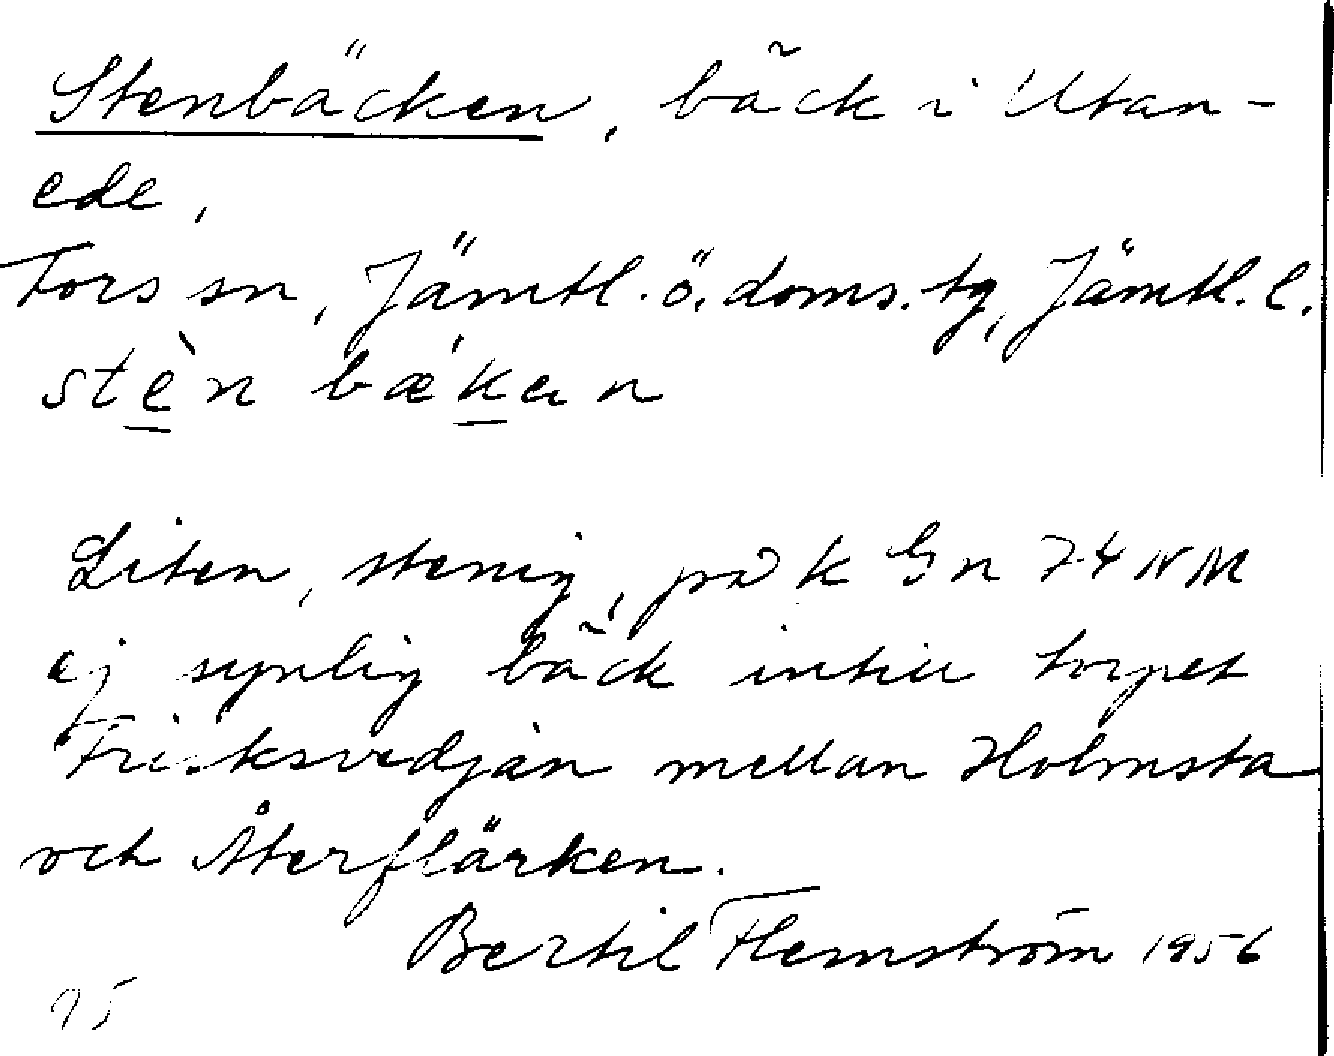 Stenbäcken, bäck i Utan-
ede,
Fors sn, Jämtl. ö. doms. tg, Jämtl. l.
stèn bǽkan
Liten, stenig, på k Gn 74 NM
ej synlig bäck intill torpet
Frisksvedjan mellan Holmsta
och Återflärken.
Bertil Flemström 1956
95